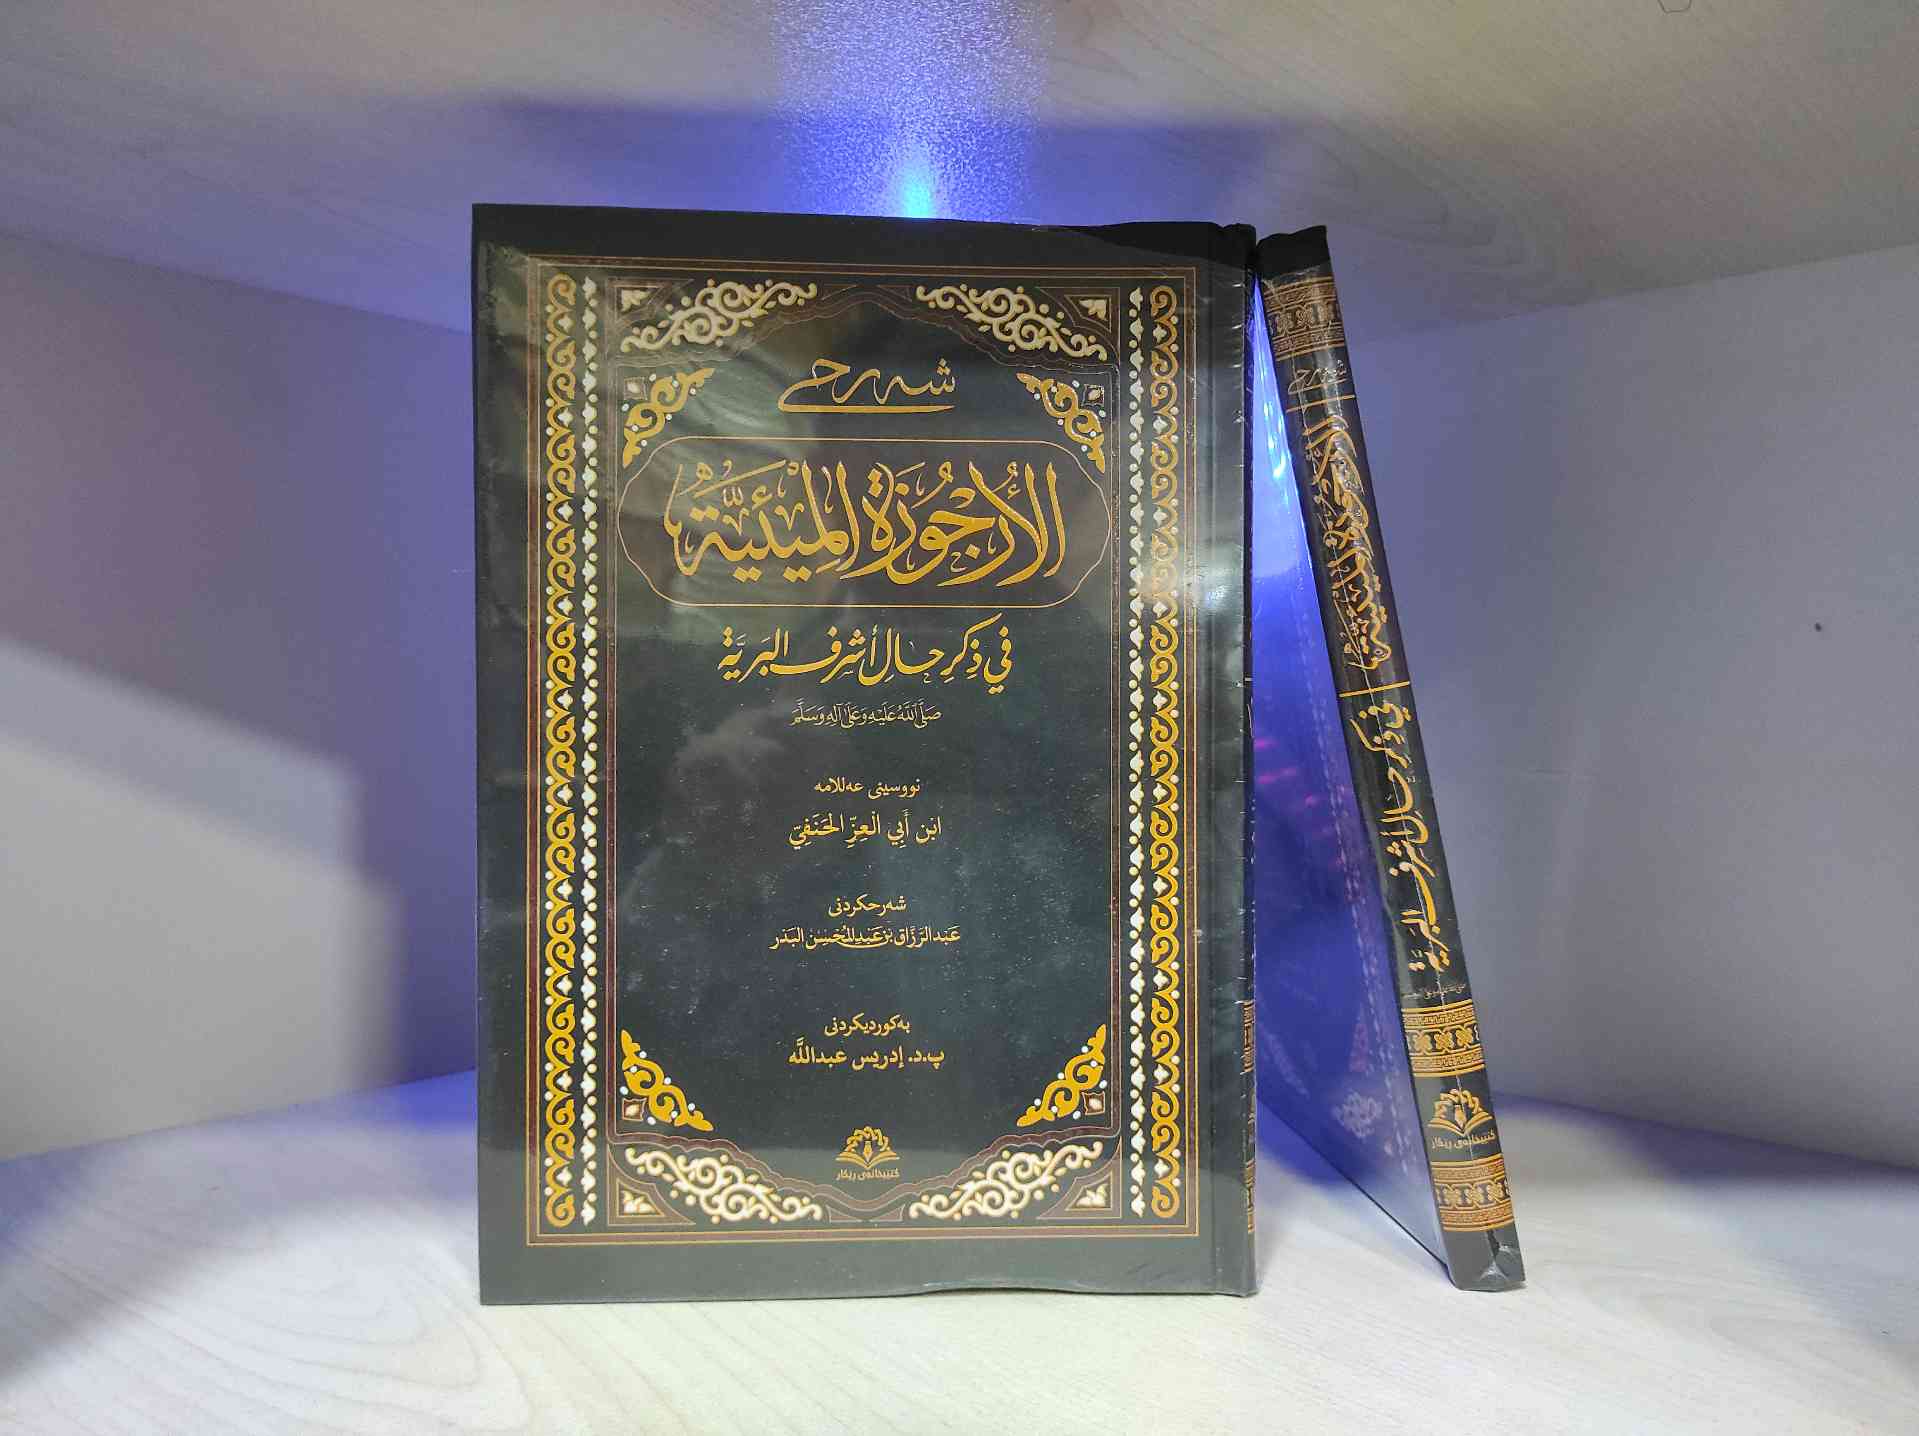 شەرحی
الأُرْجُوزَةُ المِيْئِيَّةُ
في ذِكرِ حَالِ أشرف البَرِيَّة
صَلَّى اللَّهُ عَلَيْهِ وَعَلَى آلِهِ وَسَلَّمَ
نووسینی عەللامە
ابن أَبِي العِزّ الحَنَفِيّ
شەرحکردنی
عَبْدالرَّزَّاق بْن عَبْدالمُحْسِن البَدْر
بەکوردیکردنی
پ.د. إدريس عبداللَّه
کتێبخانەی ڕێکار
شەرحی
الأُرْجُوزَةُ المِيْئِيَّةُ
في ذِكرِ حَالِ أشرف البَرِيَّة
کتێبخانەی ڕێکار